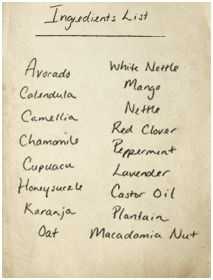 Ingredients List
Avorado
Calendula
Camellia
Chamomile
Cupuacu
Honeysuckle
Karanja
Oat
White Nettle
Mango
Nettle
Red Clover
Peppermint
Lavender
Castor Oil
Plantain
Macadamia Nut